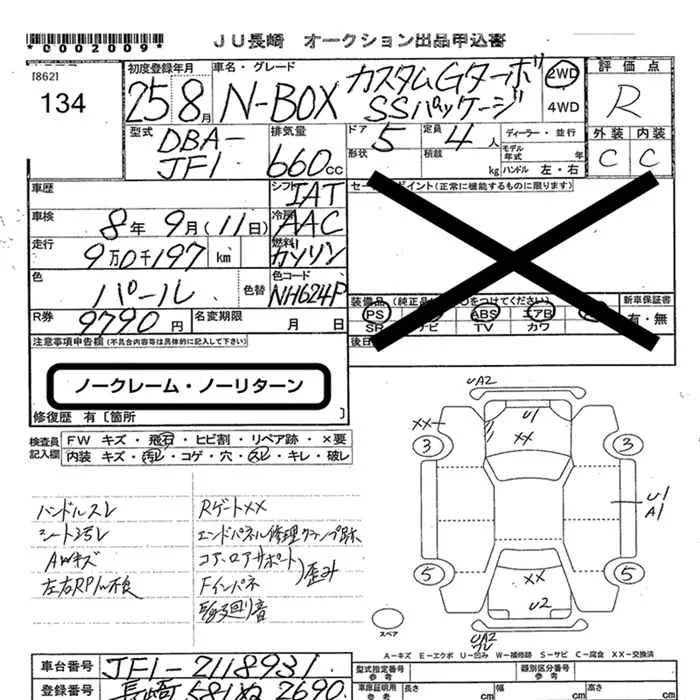 *0002009*
JU長崎 オークション出品申込書
[862]
134
初度登録年月 25年8月
車名・グレード N-BOX カスタムGターボ SSパッケージ
2WD
4WD
評価点
R
外装 内装
C C
型式 DBA-JF1
排気量 660cc
ドア 5
形状
定員 4人
積載 kg
ディーラー・並行
モデル年式 年
ハンドル 左・右
車歴
シフト IAT
セールスポイント(正常に機能するものに限ります)
車検 8年 9月(11日)
冷房 AAC
走行 9万0千197 km
燃料 ガソリン
色 パール 色替
色コード NH624P
R券 9790円
名変期限 月 日
装備品 (純正品に○をつけてください)
PS ABS エアB
SR ナビ TV カワ
新車保証書
有・無
注意事項申告欄(不具合内容等は具体的に記入して下さい)
ノークレーム・ノーリターン
修復歴 有〔箇所 〕
検査員記入欄
FW キズ・飛石・ヒビ割・リペア跡・×要
内装 キズ・汚レ・コゲ・穴・スレ・キレ・破レ
ハンドルスレ
シート汚レ
AWキズ
左右RPI/W不良
Rゲート××
エンドパネル修理クランプ跡
コア、ロアサポート
Fインパネ
歪み
UA2
U1
××
××
3
3
U1
A1
5
5
××
U2
UA2
スペア
A-キズ E-エクボ U-凹み W-補修跡 S-サビ C-腐食 XX-交換済
車台番号 JF1-2118931
登録番号 長崎581ぬ2690
型式指定番号 参考
類別区分番号 参考
車庫証明用 参考
長さ cm
幅 cm
高さ cm